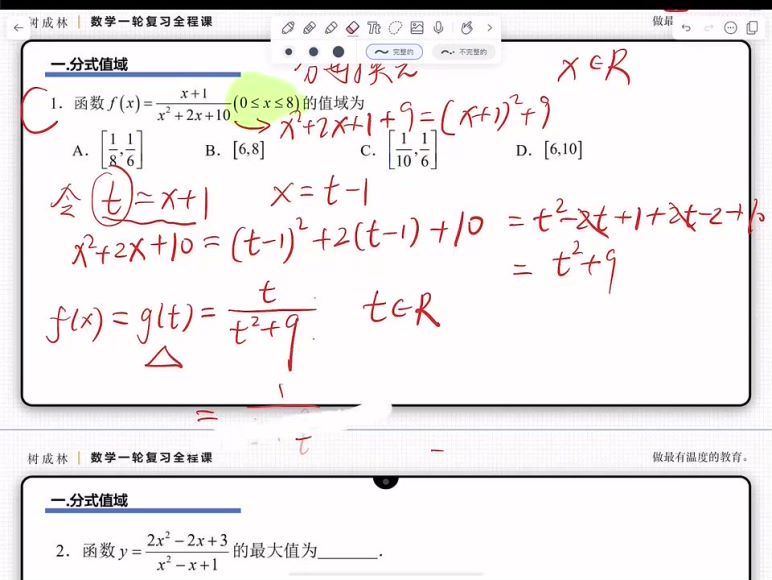 树成林 | 数学一轮复习全程课
做最
完整的
不完整的
一.分式值域
x∈R
1. 函数 f(x) = (x+1)/(x²+2x+10) (0≤x≤8)的值域为
→ x²+2x+1+9=(x+1)²+9
A. [1/8, 1/6] B. [6,8] C. [1/10, 1/6] D. [6,10]
令 t=x+1 x=t-1
x²+2x+10=(t-1)²+2(t-1)+10 =t²-2t+1+2t-2+10
=t²+9
f(x)=g(t)= t/(t²+9) t∈R
△
= 1/
t
树成林 | 数学一轮复习全程课
做最有温度的教育。
一.分式值域
2. 函数 y = (2x²-2x+3)/(x²-x+1) 的最大值为______.